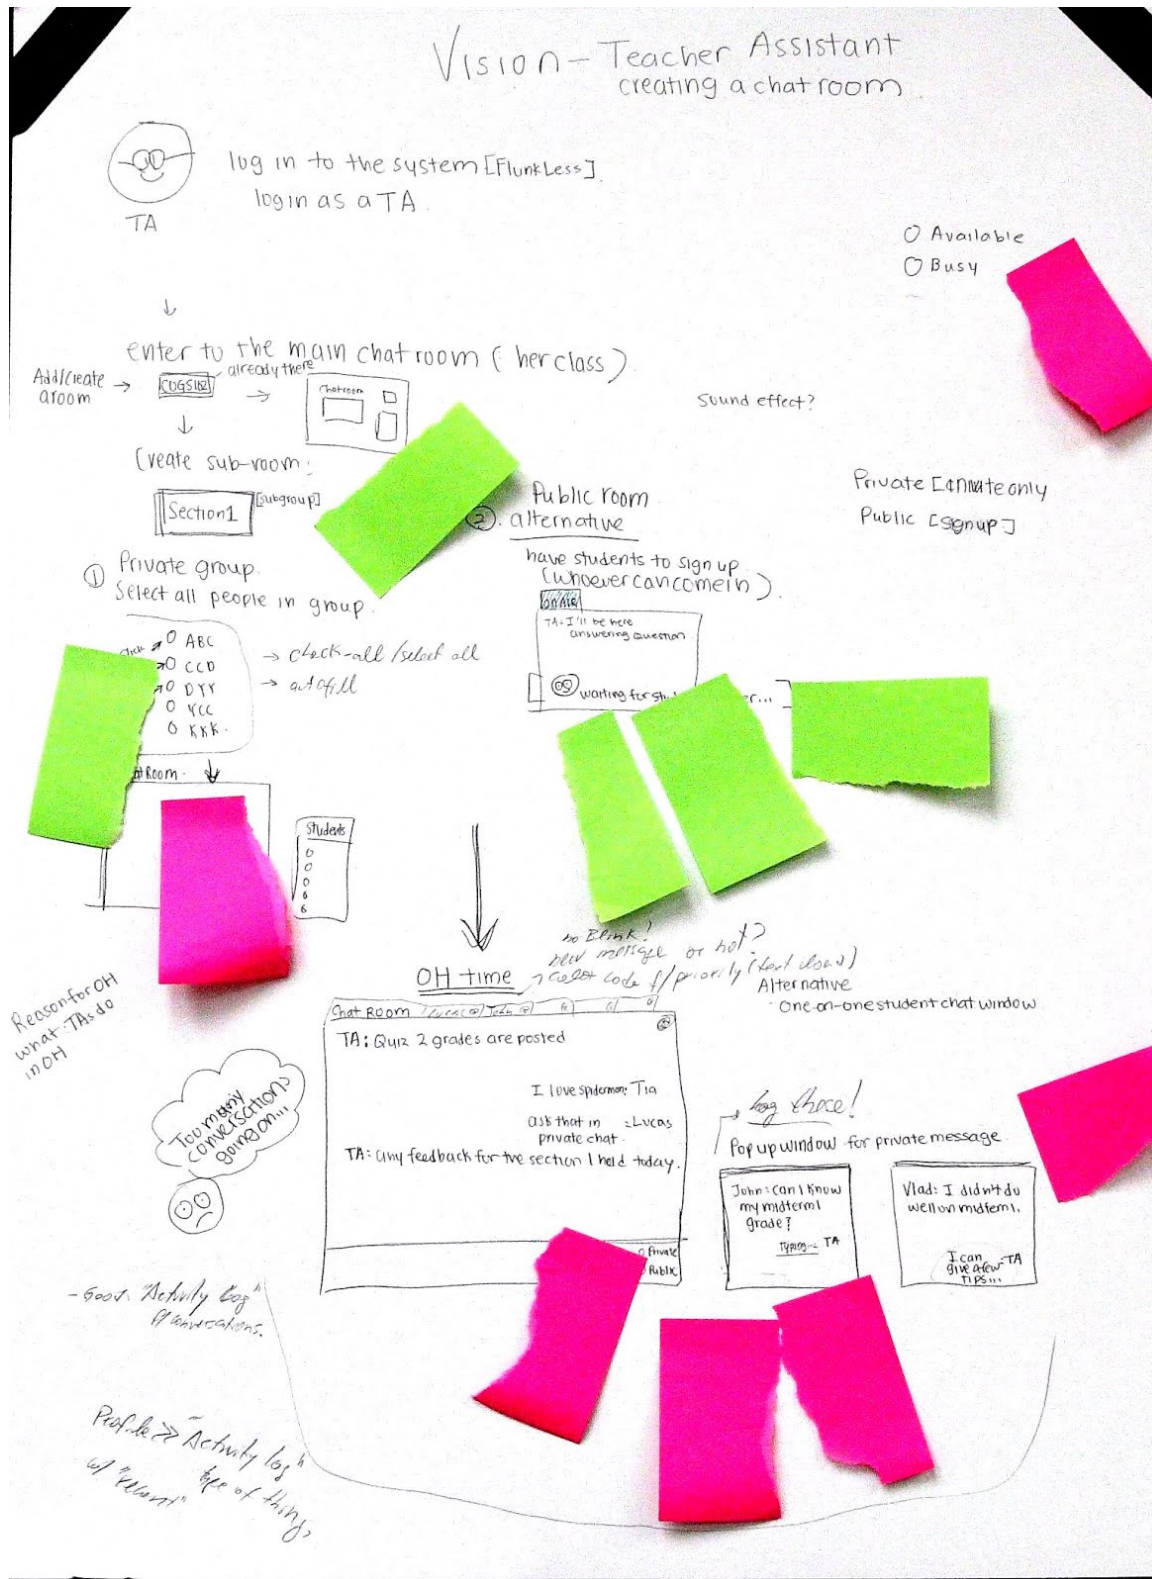 Vision – Teacher Assistant
creating a chat room
log in to the system [FlunkLess].
login as a TA.
TA
O Available
O Busy
enter to the main chat room (her class)
already there
Add/Create
a room
COGS102
Chatroom
Sound effect?
Create sub-room:
Section 1
[subgroup]
Private
only
Public [signup]
① Private group.
Select all people in group.
ABC
CCD
DYY
YCC
KKK.
→ check-all / select all
→ autofill
Room
Students
Public room
②. alternative
have students to sign up
(whoever can come in).
TA: I'll be here
answering question
waiting for
r...
no Blink!
new message or not?
→ color code f/ priority (text
OH time
Alternative
One-on-one student chat window
Reason for OH
what TAs do
in OH
Chat Room
Lucas
John
TA: Quiz 2 grades are posted
I love spiderman: Tia
ask that in :Lucas
private chat.
TA: any feedback for the section I held today.
Private
Public
Too many
conversations
going on...
Pop up window for private message
John: Can I know
my midterm1
grade?
Typing... TA
Vlad: I didn't do
well on midterm1.
I can -TA
give a few
TIPS...
- Good. "Activity Log"
of conversations.
Profile >> "Activity log"
type of thing.
w/